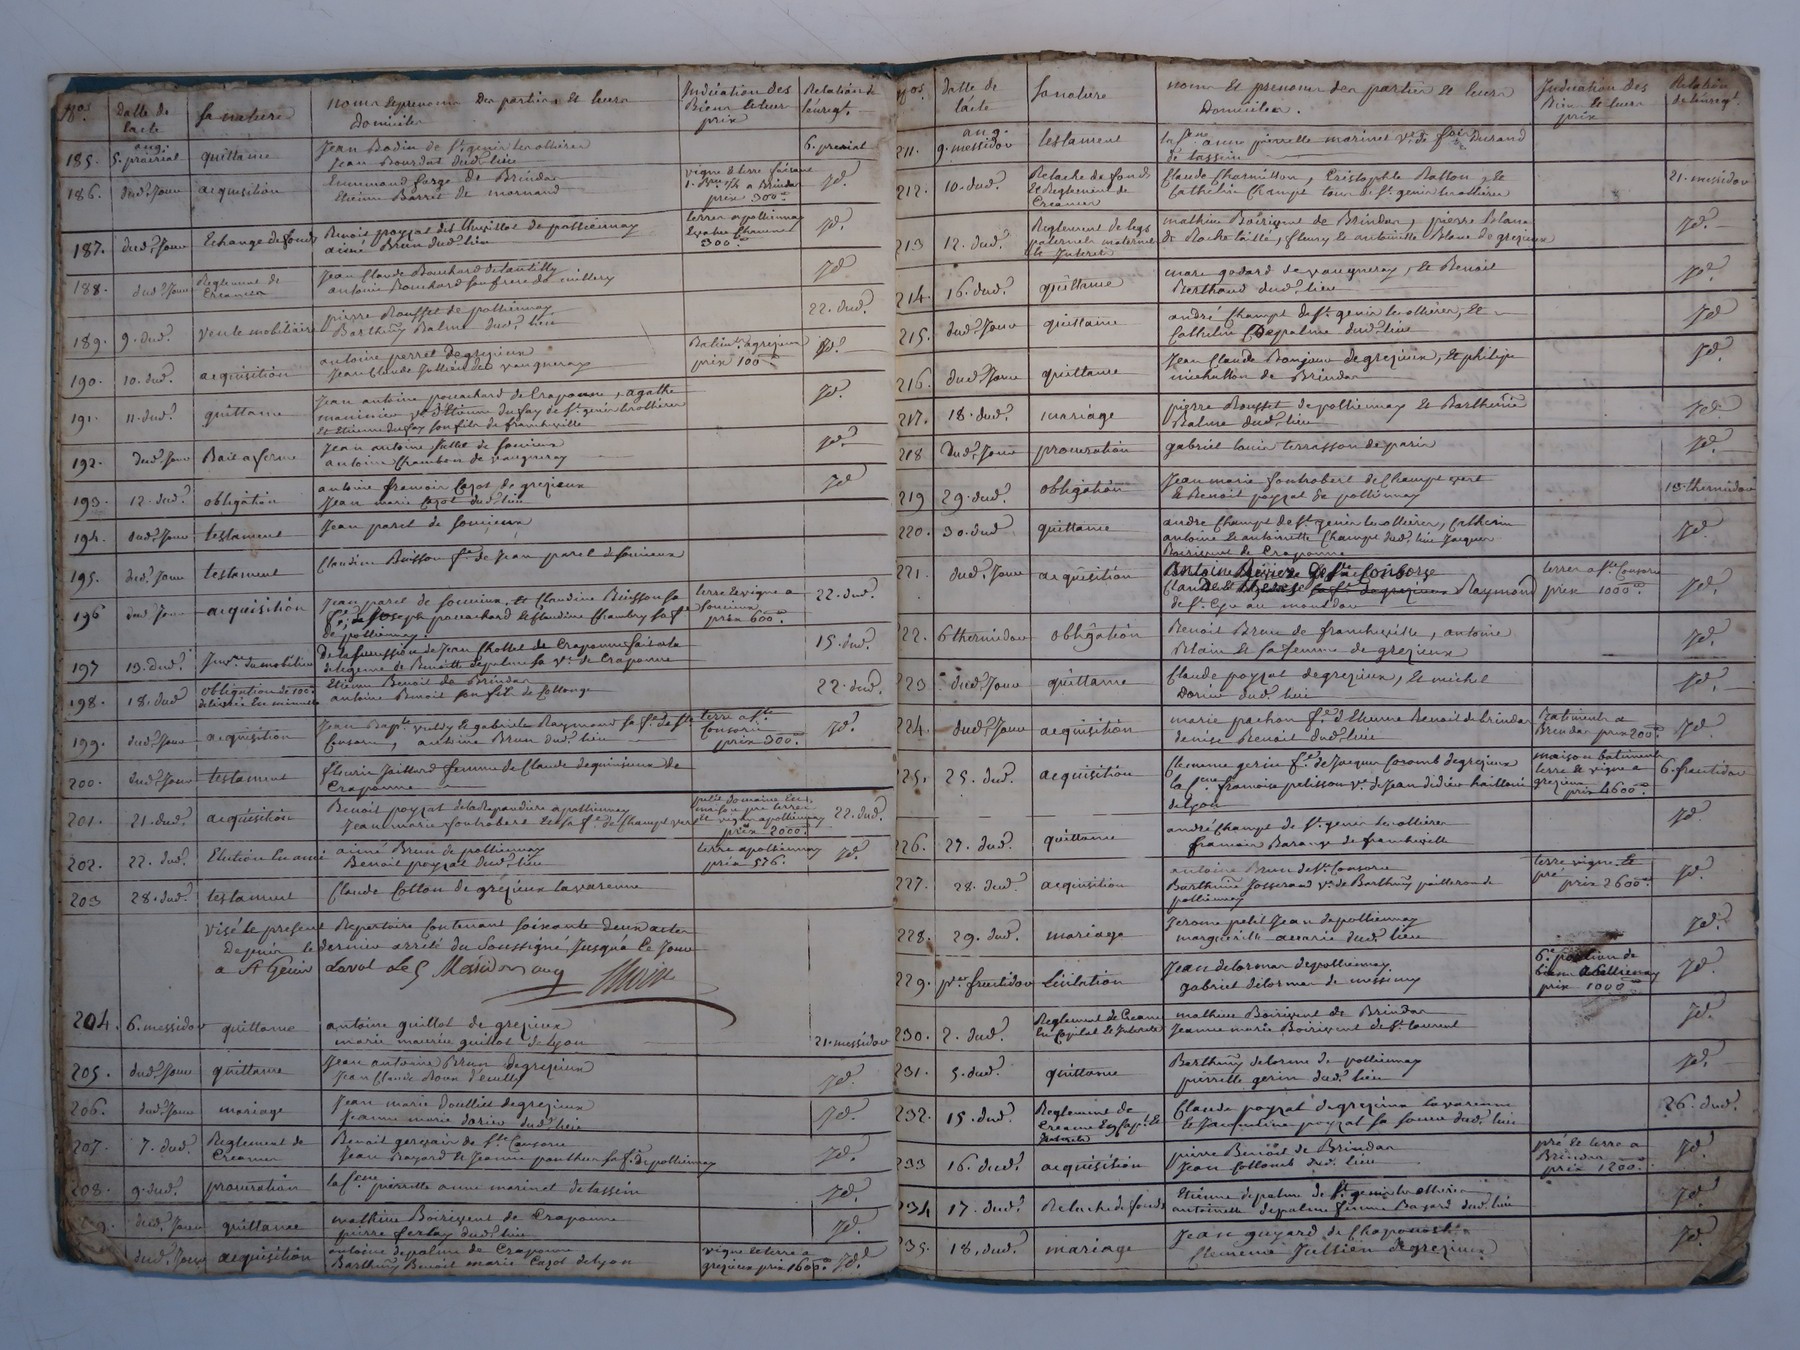 Nos. Datte de lacte Sa nature noms et prenoms des parties, et leurs domiciles Indication des Biens et leurs prix Relation de l'enregt.
185. an 9. 5. prairial quittance Jean Badin de St. genis les ollieres 6. prairial
Jean Bourdat dud. lieu
186. dud. Jour acquisition Ennemond farge de Brindas vigne et terre Jd.
Etienne Barret de mornand a Brindas prix 300
187. dud. Jour Echange de fonds Benoit payzat de pollionnay terres a pollionnay Jd.
aimé Brun dud. lieu 300
188. dud. Jour Reglement de Creances Jean Claude Bouchard de lentilly Jd.
antoine Bouchard son frere de millery
189. 9. dud. vente mobiliaire pierre Rousset de pollionnay 22. dud.
Barthmy Balme dud. lieu
190. 10. dud. acquisition antoine perret de grezieux Batimt. a grezieux Jd.
Jean Claude Jullien de vaugneray prix 100
191. 11. dud. quittance Jean antoine pouchard de Craponne, agathe Jd.
ve. d'Etienne dufay de St. genis les ollieres
et Etienne dufay son fils de francheville
192. dud. Jour Bail a ferme Jean antoine de soucieux Jd.
antoine Chambon de vaugneray
193. 12. dud. obligation antoine francois Cazot de grezieux Jd.
Jean marie Cazot dud. lieu
194. dud. Jour testament Jean parel de soucieux
195. dud. Jour testament Claudine Buisson fe. de Jean parel de soucieux
196 dud. Jour acquisition Jean parel de soucieux et Claudine Buisson sa terre et vigne a 22. dud.
fe., de Joseph pouachard et Claudine Chambry sa fe. soucieux prix 600
de pollionnay.
197 13. dud. Invre. du mobilier De la succession de Jean Chollet de Craponne fait a la 15. dud.
de Benoitte depalme sa ve. de Craponne
198. 18. dud obligation de 100 Etienne Benoit de Brindas 22. dud.
delivrée en minute antoine Benoit son fils de Collonge
199. dud. Jour acquisition Jean Bapte. et gabrielle Raymond sa fe. de Ste terre a Ste. Jd.
Consorce, antoine Brun dud. lieu Consorce prix 300.
200. dud. Jour testament fleurie Jaillard femme de Claude dequinsieux de
Craponne
201. 21. dud. acquisition Benoit payzat de la Repaudiere a pollionnay petit domaine 22. dud.
Jean marie fontrobert et sa fe. de Champt vert maison pré terres et vigne a pollionnay prix 2000.
202. 22. dud. Election en ami aimé Brun de pollionnay terre a pollionnay Jd.
Benoit payzat dud. lieu prix 576.
203 28. dud. testament Claude Cotton de grézieux la varenne
visé le present Repertoire Contenant soixante deux actes
Depuis le dernier arrété du Soussigné Jusqua ce Jour
a St Genis Laval le 5 Messidor an 9
204. 6. messidor quittance antoine guillot de grezieux 21. messidor
marie maurice guillot de Lyon
205. dud. Jour quittance Jean antoine Brun de grezieux Jd.
Jean Claude Roux d'ecully
206. dud. Jour mariage Jean marie doulliet de grezieux Jd.
Jeanne marie dorier dud. lieu
207. 7. dud. Reglement de Creances Benoit gervais de Ste. Consorce Jd.
Jean Bazard et Jeanne ponthus sa fe. de pollionnay
208. 9. dud. procuration la Cene. pierrette anne marinet de tassein Jd.
dud. Jour quittance mathieu Boirivent de Craponne Jd.
pierre ferlay dud. lieu
dud. Jour acquisition antoine depalme de Craponne vigne et terre a Jd.
Barthmy Benoit marie Cazot de Lyon grezieux prix 1600
nos. Datte de lacte Sa nature noms et prenoms des parties et leurs Domiciles. Indication des Biens et leurs prix Relation de l'enregt.
211. an 9. 9. messidor testament la Cene. anne pierrette marinet ve. de Durand
de tassein
212. 10. dud. Relache de fonds et Reglement de Creances Claude Charmillon, Cristophle Ratton, et 21. messidor
Catheline Champt tous de St. genis les ollieres
213 12. dud. Reglement de legs paternels maternels et Interets mathieu Boirivent de Brindas, pierre Blanc Jd.
de Rochetaillé, fleury et antoinette Blanc de grezieux
214. 16. dud. quittance marc godard de vaugneray, et Benoit Jd.
Berthaud dud. lieu
215. dud. Jour quittance andré Champt de St. genis les ollieres, et Jd
Catheline Depalme dud. lieu
216. dud. Jour quittance Jean Claude Bonjour de grezieux, et philipe Jd.
michallon de Brindas
217. 18. dud. mariage pierre Rousset de pollionnay et Barthmie Jd.
Balme dud. lieu
218 Dud. Jour procuration gabriel louis terrasson de paris Jd.
219 29. dud. obligation Jean marie fontrobert de Champt vert 13. thermidor
et Benoit payzat de pollionnay
220. 30. dud quittance andre Champt de St. genis les ollieres, Catherin Jd.
antoine et antoinette Champt dud. lieu Jacques
Boirivent de Craponne
221. dud. Jour acquisition Antoine Riviere de Ste Consorce terres a Ste. Consorce Jd.
Raymond prix 1000
de St. Cyr au mont dor
222. 6 thermidor obligation Benoit Brun de francheville, antoine Jd.
Blain et sa femme de grezieux
223 dud. Jour quittance Claude payzat de grezieux, et michel Jd.
Dorier dud. lieu
224. dud. Jour acquisition marie pachon fe. d'Etienne Benoit de brindas batiments a Jd.
denise Benoit dud. lieu Brindas prix 200
225. 25. dud. acquisition Clemence gerin fe. de Jacques Coromb de grezieux maison batiments 6. fructidor
la Cene. francoise pelisson ve. de Jean didier terre et vigne a grezieux
de Lyon prix 4600
226. 27. dud. quittance andré Champt de St. genis les ollieres Jd.
francois Barange de francheville
227. 28. dud. acquisition antoine Brun de Ste. Consorce terre vigne et Jd.
Barthmie Josserand ve. de Barthmy de pré prix 2600
pollionnay
228. 29. dud. mariage Jerome petit Jean de pollionnay Jd.
marguerite dud. lieu
229. 1er. fructidor Licitation Jean delorme de pollionnay 6e. portion de Jd.
gabriel delorme de messimy biens a pollionnay prix 1000
230. 2. dud. Reglement de Creance en Capital et Interets mathieu Boirivent de Brindas Jd.
Jeanne marie Boirivent de St laurent
231. 5. dud. quittance Barthmy delorme de pollionnay Jd.
pierrette gerin dud. lieu
232. 15. dud. Reglement de Creance En Capl. et Interets Claude payzat de grezieux la varenne 26. dud.
et Jacqueline payzat sa soeur dud. lieu
233 16. dud. acquisition pierre Benoit de Brindas pré et terre a Jd.
Jean Collomb dud. lieu Brindas prix 1200
234 17. dud. Relache de fonds Etienne depalme de St. genis les ollieres Jd.
antoinette depalme femme Bazard dud. lieu
235. 18. dud. mariage Jean guyard de Chaponost Jd.
Clemence Jullien de grezieux